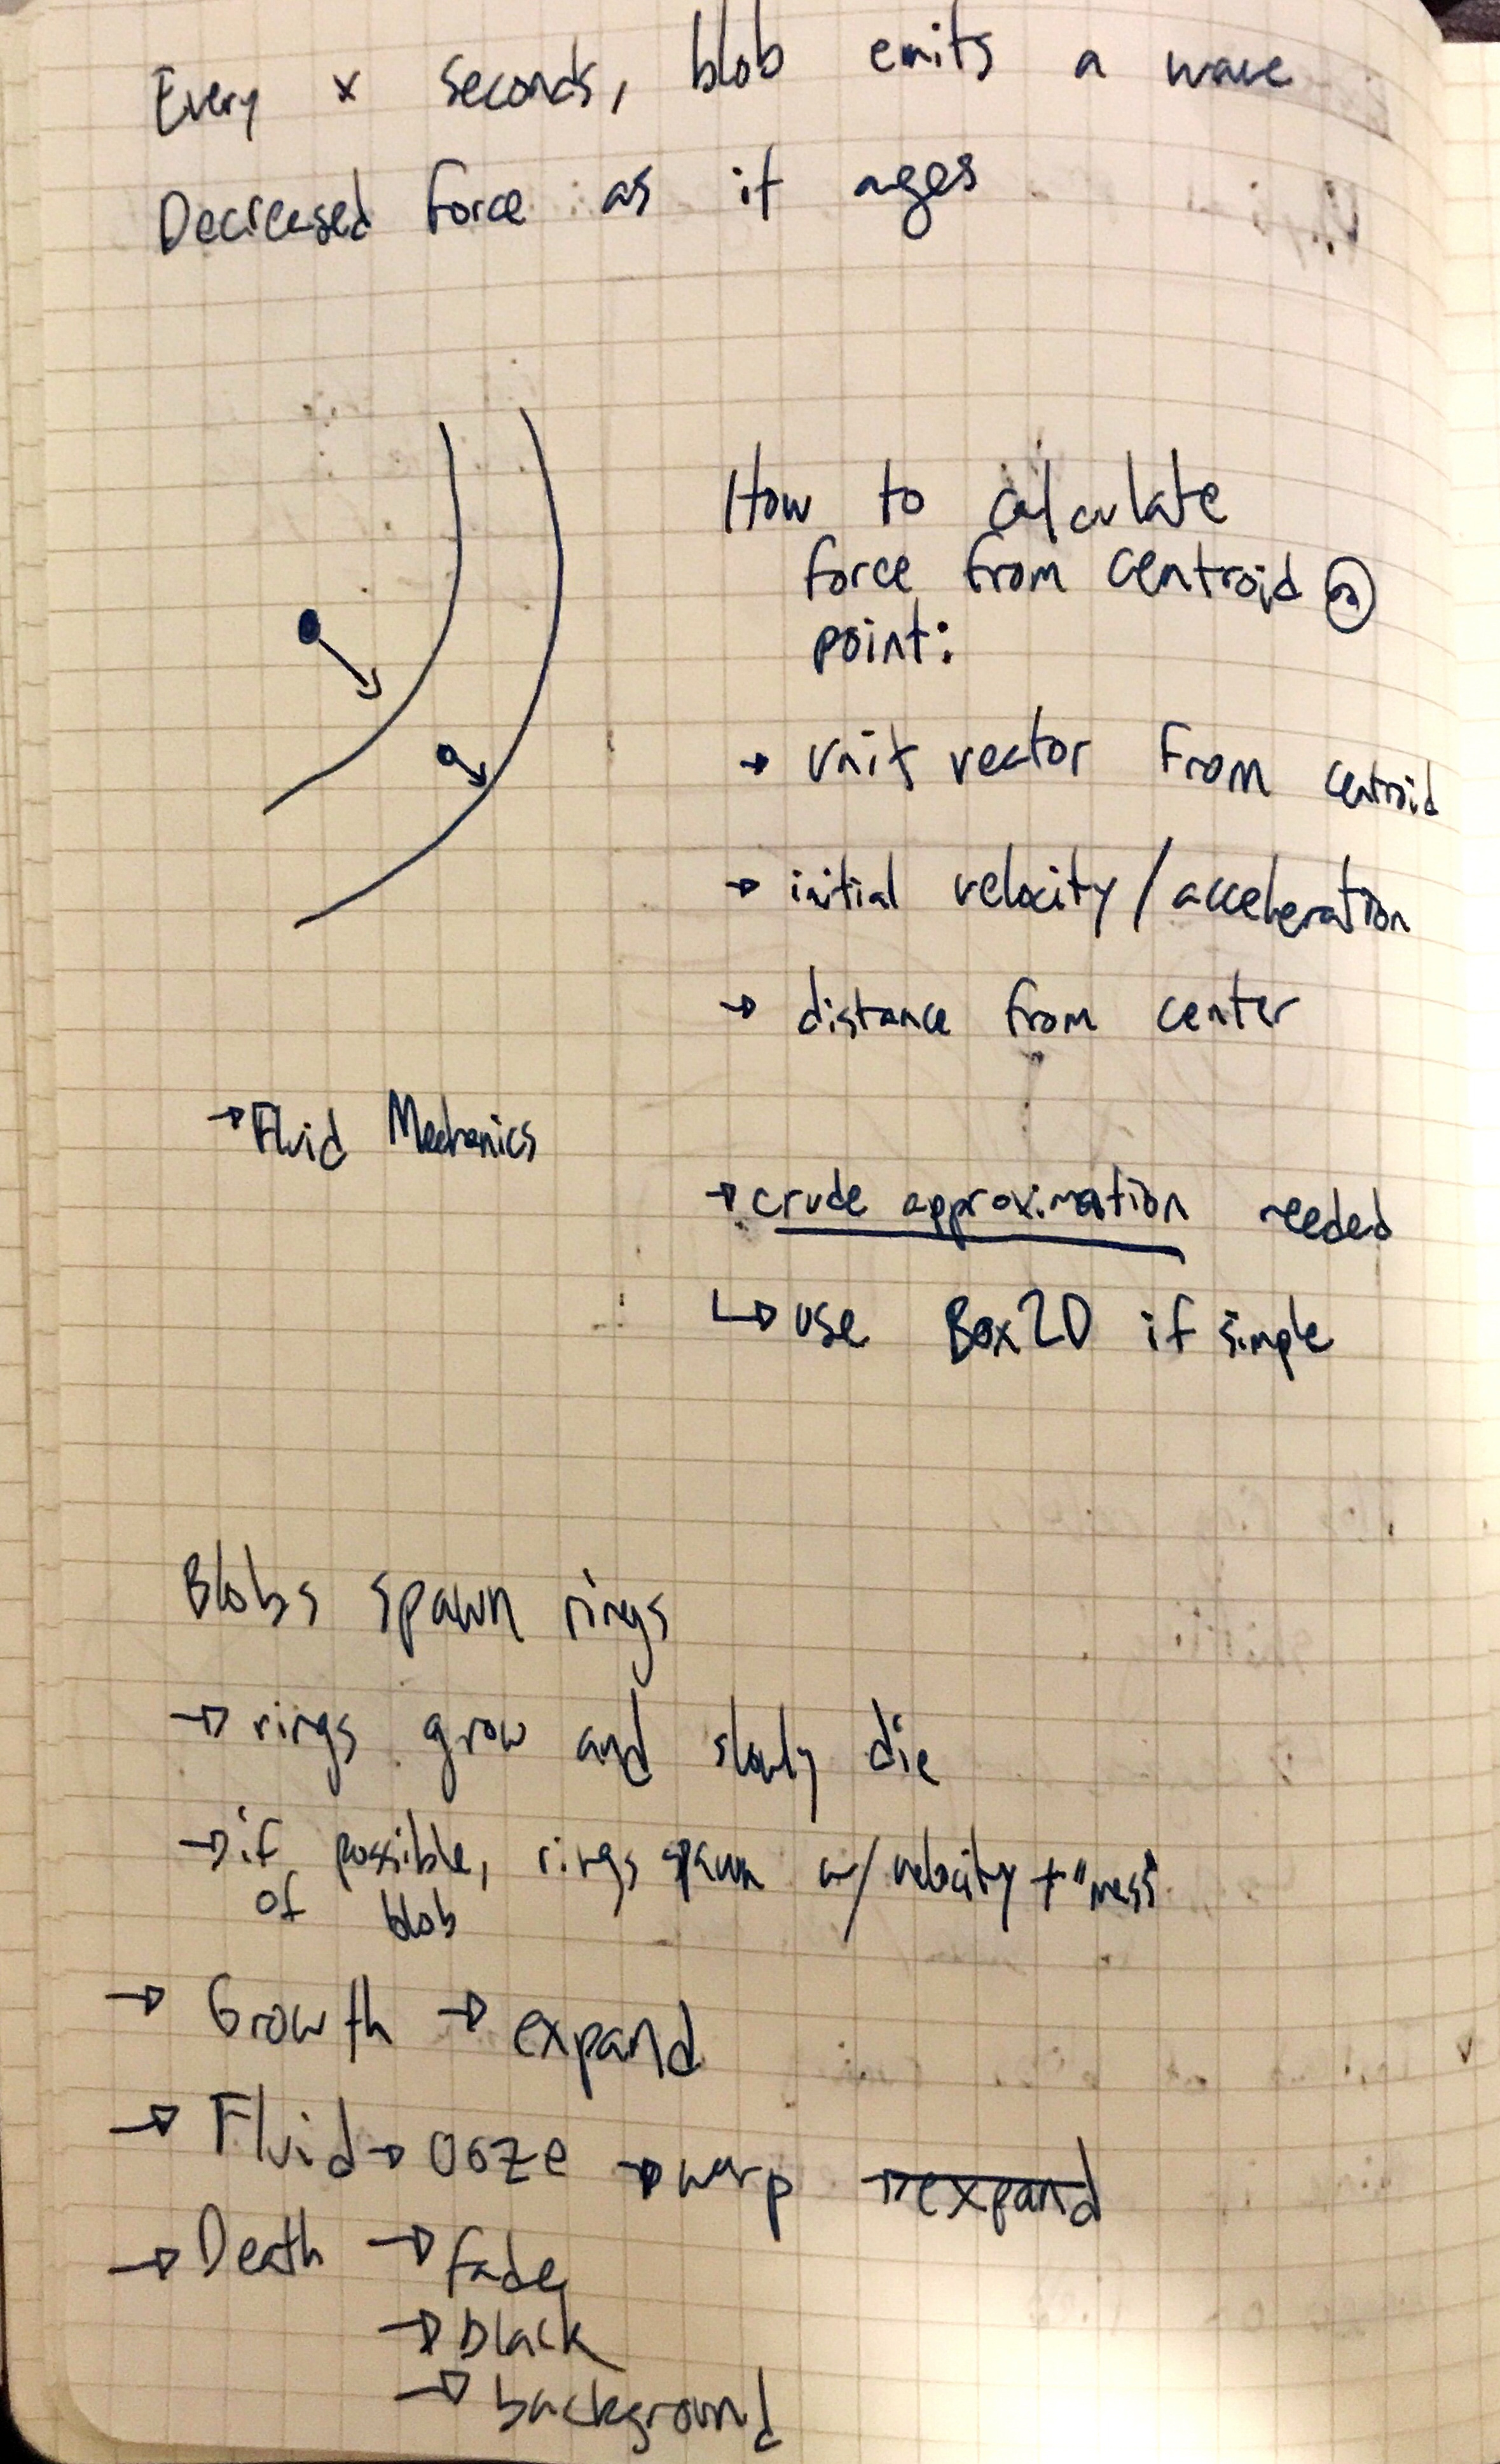 Every x seconds, blob emits a wave
Decreased force as it ages
How to calculate
force from centroid @
point:
→ unit vector from centroid
→ initial velocity/acceleration
→ distance from center
→ Fluid Mechanics
→ crude approximation needed
↳ use Box2D if simple
Blobs spawn rings
→ rings grow and slowly die
→ if possible, rings spawn w/ velocity + "mass"
of blob
→ Growth → expand
→ Fluid → ooze → warp → expand
→ Death → fade
→ black
→ background